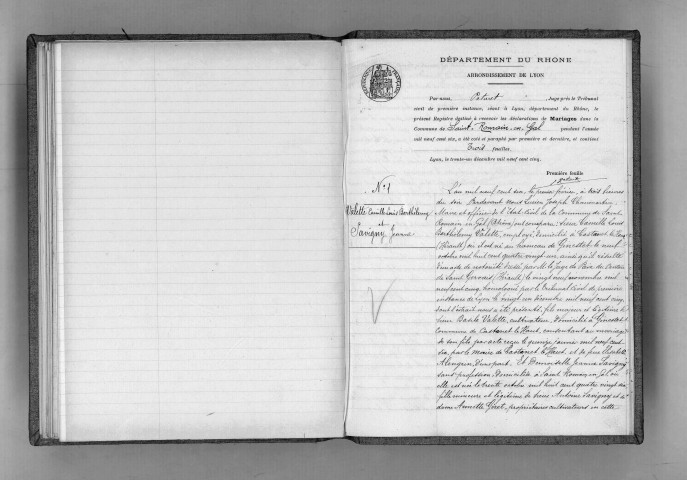 DÉPARTEMENT DU RHONE
ARRONDISSEMENT DE LYON
Par nous, Juge près le Tribunal
civil de première instance, séant à Lyon, département du Rhône, le
présent Registre destiné à recevoir les déclarations de Mariages dans la
Commune de Saint-Romain-en-Gal pendant l'année
mil neuf cent six, a été coté et paraphé par première et dernière, et contient
Trois feuilles.
Lyon, le trente-un décembre mil neuf cent cinq.
Première feuille
N° 1
Valette Camille Louis Barthélemy
et
Savigny Jeanne
L'an mil neuf cent six, le premier février, à trois heures
du soir Pardevant Nous Lucien Joseph
Maire et officier de l'Etat Civil de la Commune de Saint
Romain en Gal (Rhône) ont comparu: sieur Camille Louis
Barthélemy Valette, employé, domicilié à Castanet le Haut
(Hérault) où il est né au hameau de Ginestet le neuf
octobre mil huit cent quatre vingt-un ainsi qu'il résulte
d'un acte de notoriété dressé par M. le Juge de Paix du Canton
de Saint Gervais (Hérault) le vingt neuf novembre mil
neuf cent cinq, homologué par le Tribunal Civil de première
instance de Lyon le vingt un décembre mil neuf cent cinq,
dont l'extrait nous a été présenté, fils majeur et légitime de
sieur Basile Valette, cultivateur, domicilié à Ginestet
Commune de Castanet le Haut, consentant au mariage
de son fils par acte reçu le quinze janvier mil neuf cent
six, par le Maire de Castanet le Haut, et de feue
d'une part. Et Demoiselle Jeanne Savigny
sans profession, domiciliée à Saint Romain en Gal où
elle est née le trente octobre mil huit cent quatre vingt
fille mineure et légitime de sieur Antoine Savigny et de
dame Annette, propriétaires cultivateurs en cette